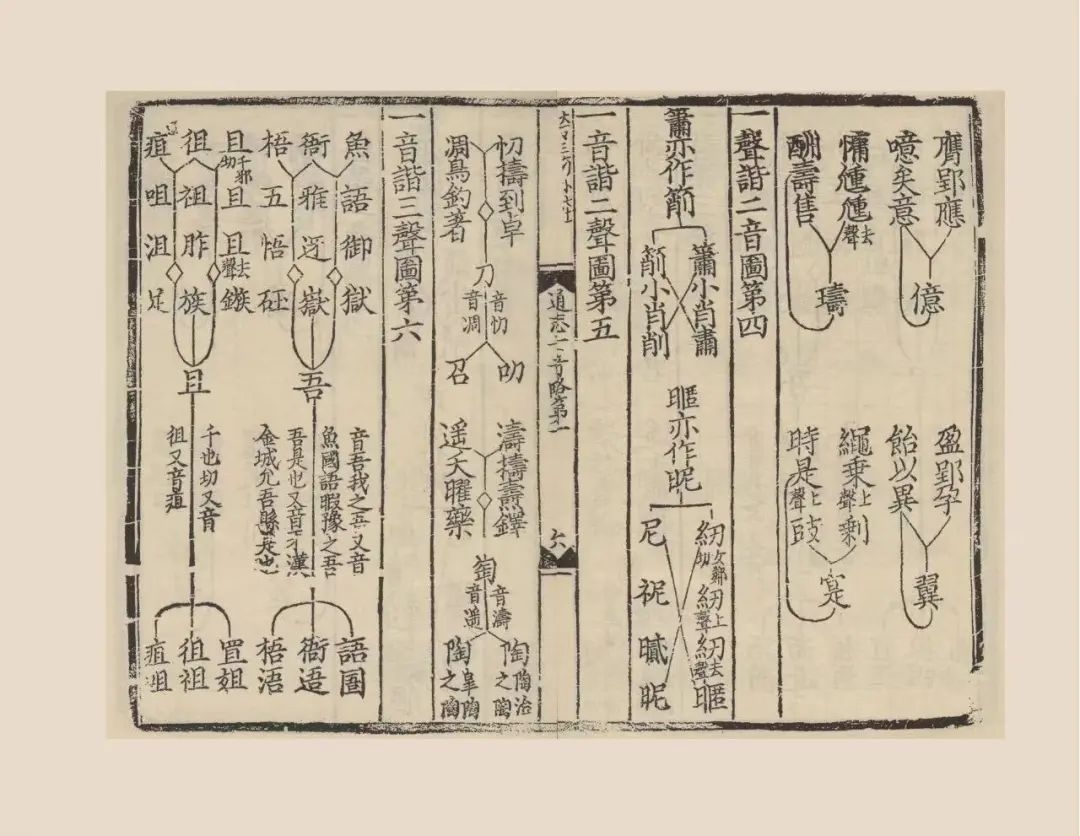 膺郢應
噫矣意
億
慵尰尰去聲
酬壽售
璹
盈郢孕
飴以異
翼
繩乗上聲剩
時是上聲豉
寔
一聲諧二音圖第四
簫亦作箾
簫小肖肅
箾小肖削
暱亦作昵
紉女鄰切紉上聲紉去聲暱
尼柅膩昵
一音諧二聲圖第五
通志七音略第一
六
忉擣到卓
凋鳥釣著
刀
音忉
音凋
叨
召
濤擣燾鐸
遥夭曜藥
匋
音濤
音遥
陶陶冶之陶
陶臯陶之陶
一音諧三聲圖第六
魚語御獄
衙雅迓嶽
梧五悟矹
吾
音吾我之吾又音
魚國語暇豫之吾
吾是也又音牙漢
金城允吾縣是也
語圄
衙逜
梧浯
且千邪切且且去聲鏃
徂祖胙族
疽咀沮足
且
千也切又音
徂又音疽
罝姐
徂祖
疽